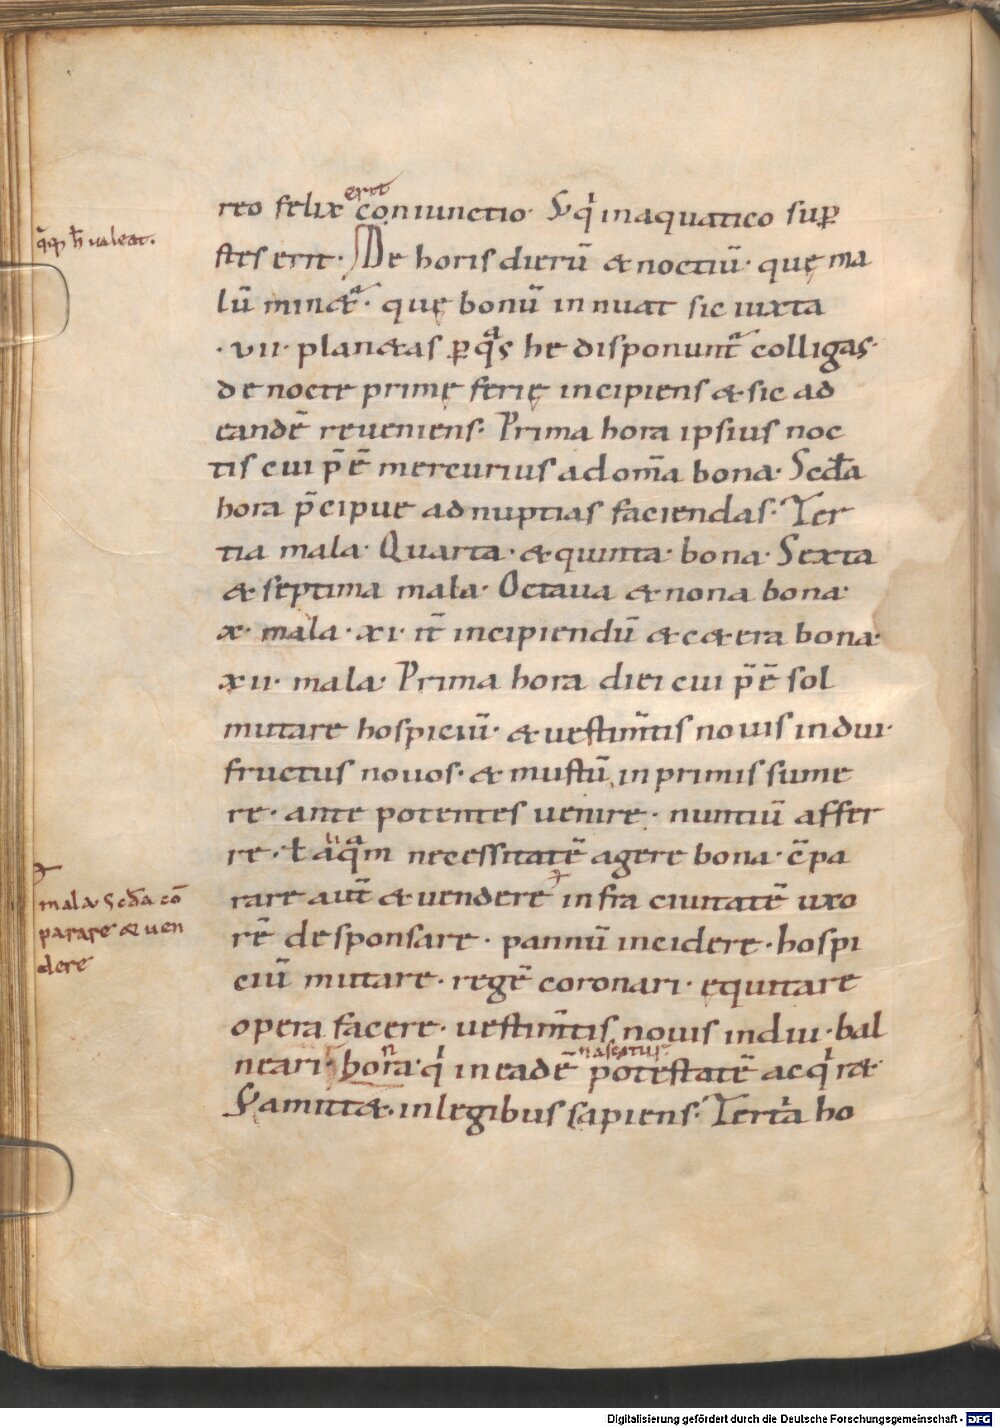 reo felix erit coniunctio. Sꝫ q̇ in aquatico suꝑ
q̄q̄ꝫ h̄ ualeat.
stes erit. De horis dierū & noctiū. quę ma
lū min&ᵃ. quę bonū innuat sic iuxta
.vii. plan&as ꝑ qᵃs he disponuntᵃ colligas.
de nocte primę ferię incipiens & sic ad
eandē reueniens. Prima hora ipsius noc
tis cui p̄ ē mercurius ad om̄a bona. Scďa
hora p̄cipue ad nuptias faciendas. Ter
tia mala. Quarta. & quinta. bona. Sexta
& septima mala. Octaua & nona bona.
x. mala. xi. it̄ incipiendū & c&era bona.
xii. mala. Prima hora diei cui p̄ ē sol
mutare hospiciū. & uestim̄tis nouis indui.
fructus nouos. & mustū in primis sume
re. ante potentes uenire. nuntiū affer
re. ł aqᵃm necessitatē agere bona. c̄pa
rare aut̄ & uendere infra ciuitatē uxo
mala. Scďa cō
parare & uen
dere
rē desponsare. pannū incidere. hospi
ciū mutare. regē coronari. equitare
opera facere. uestim̄tis nouis indui. bal
neari. bona. q̇ in eadē nascatur potestatē acq̇r&
Sꝫ amitt&. in legibus sapiens. Tertia ho
Digitalisierung gefördert durch die Deutsche Forschungsgemeinschaft - DFG